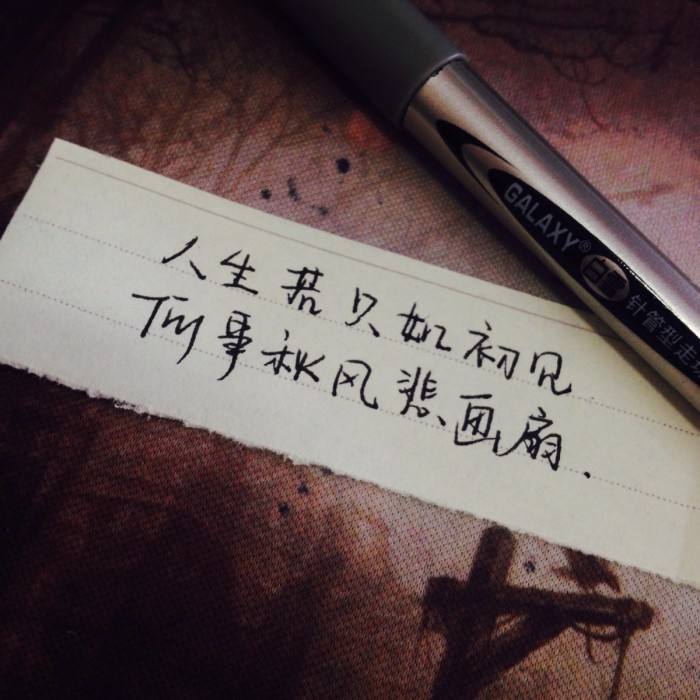 GALAXY®
白雪
针管型走珠
人生若只如初见
何事秋风悲画扇.